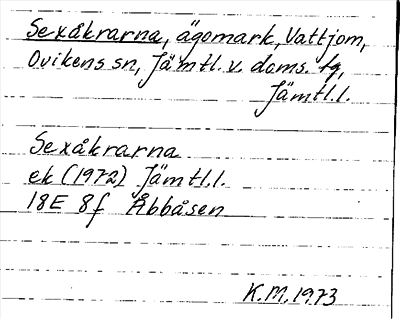 Sexåkrarna, ägomark, Vattjom,
Ovikens sn, Jämtl. v. doms. tg,
Jämtl.l.
Sexåkrarna
ek (1972) Jämtl.l.
18E 8f Åbbåsen
K.M. 1973